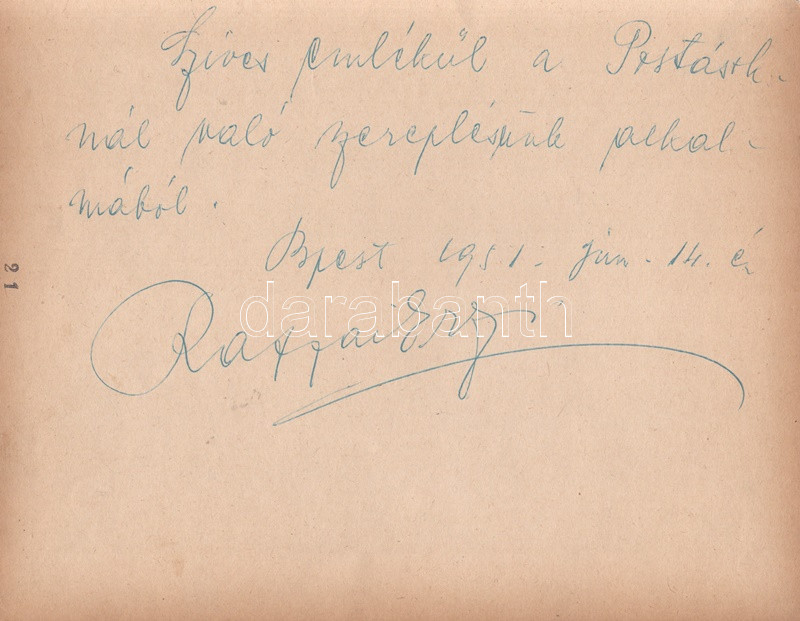 Szives emlékül a Postások-
nál való szereplésünk alkal-
mából.
Bpest 1951. jún. 14. én
21
darabanth